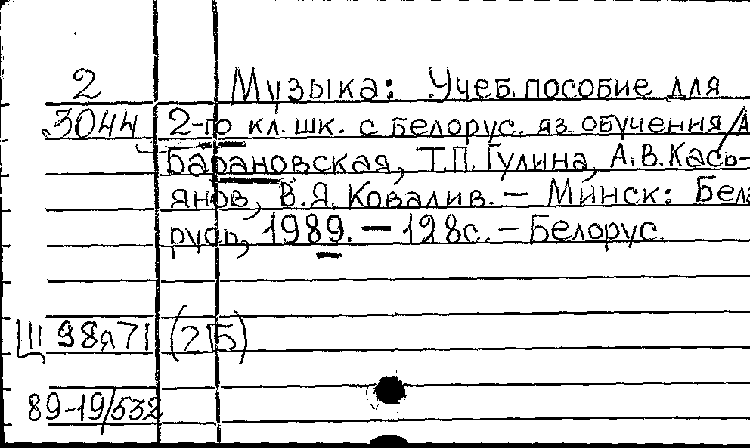 2 Музыка: Учеб. пособие для
3044 2-го кл. шк. с белорус. яз. обучения /А
Барановская, Т.П. Гулина, А.В. Кась-
янов, В.Я. Ковалив. — Минск: Бела
русь, 1989. — 128с. — Белорус.
Щ 98я71 (2Б)
89-19/532